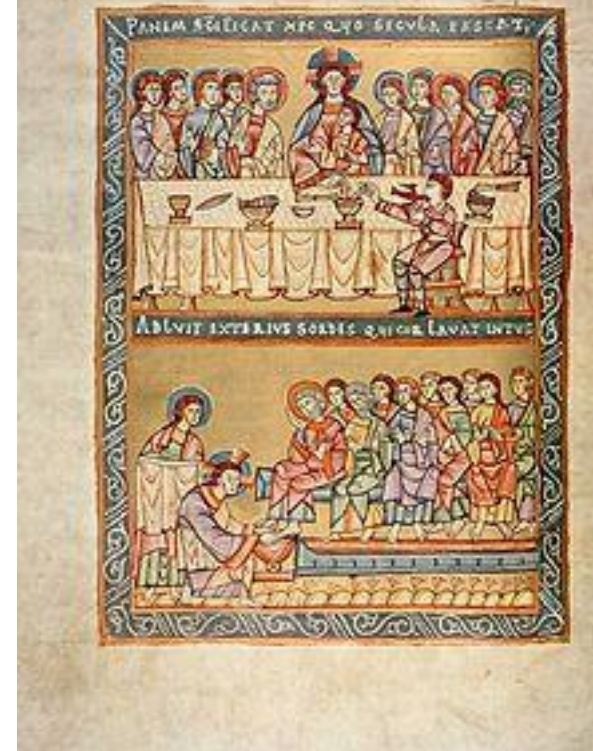 PANEM SCIFICAT XPC QVO SECVLA PASCAT
ABLVIT EXTERIVS SORDES QVI COR LAVAT INTVS